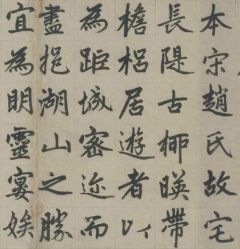 本宋趙氏故宅
長隄古柳暎帶
檐梠居遊者以
為距城密迩而
盡挹湖山之勝
宜為明靈宴娭